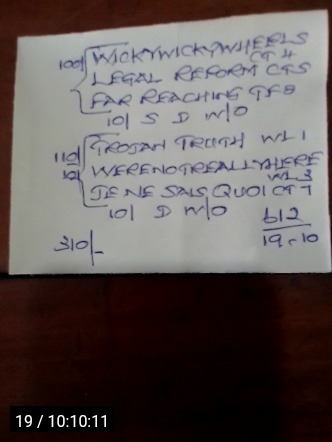 100/ WICKYWICKYWHEELS
CT 4
LEGAL REFORM CT5
FAR REACHING TF8
10/ S D W/O
110/ TROJAN TRUTH WL1
10/ WERENOTREALLYHERE
WL3
JE NE SAIS QUOI CT7
10/ D W/O
612
310/- 19-10
19 / 10:10:11